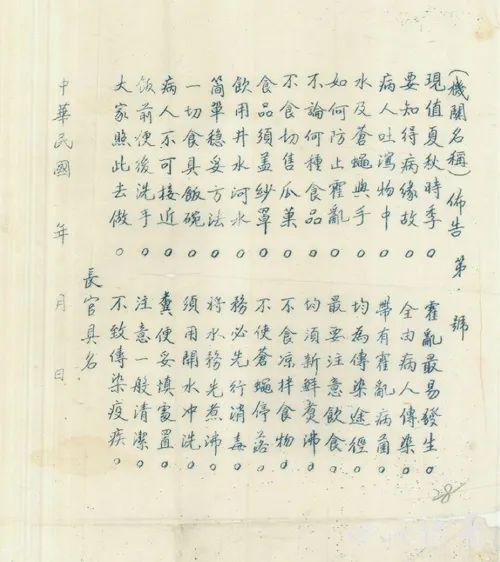 (機關名稱)佈告第 號
現值夏秋時季。霍亂最易發生
要知得病緣故。全由病人傳染。
病人吐瀉物中。帶有霍亂病菌。
水及蒼蠅與手。均為傳染途徑。
如何防止霍亂。最要注意飲食。
不論何種食品。均須新鮮煑沸。
不食切售瓜菓。不食凉拌食物。
食品須蓋紗罩。不使蒼蠅停落。
飲用井水河水。務必先行消毒。
簡單穩妥方法。將水務先煮沸。
一切食具飯碗。須用開水冲洗。
病人不可接近。糞便妥慎處置。
飯前便後洗手。注意一般清潔。
大家照此去做。不致傳染疫疾。
長官具名
中華民國 年 月 日
28